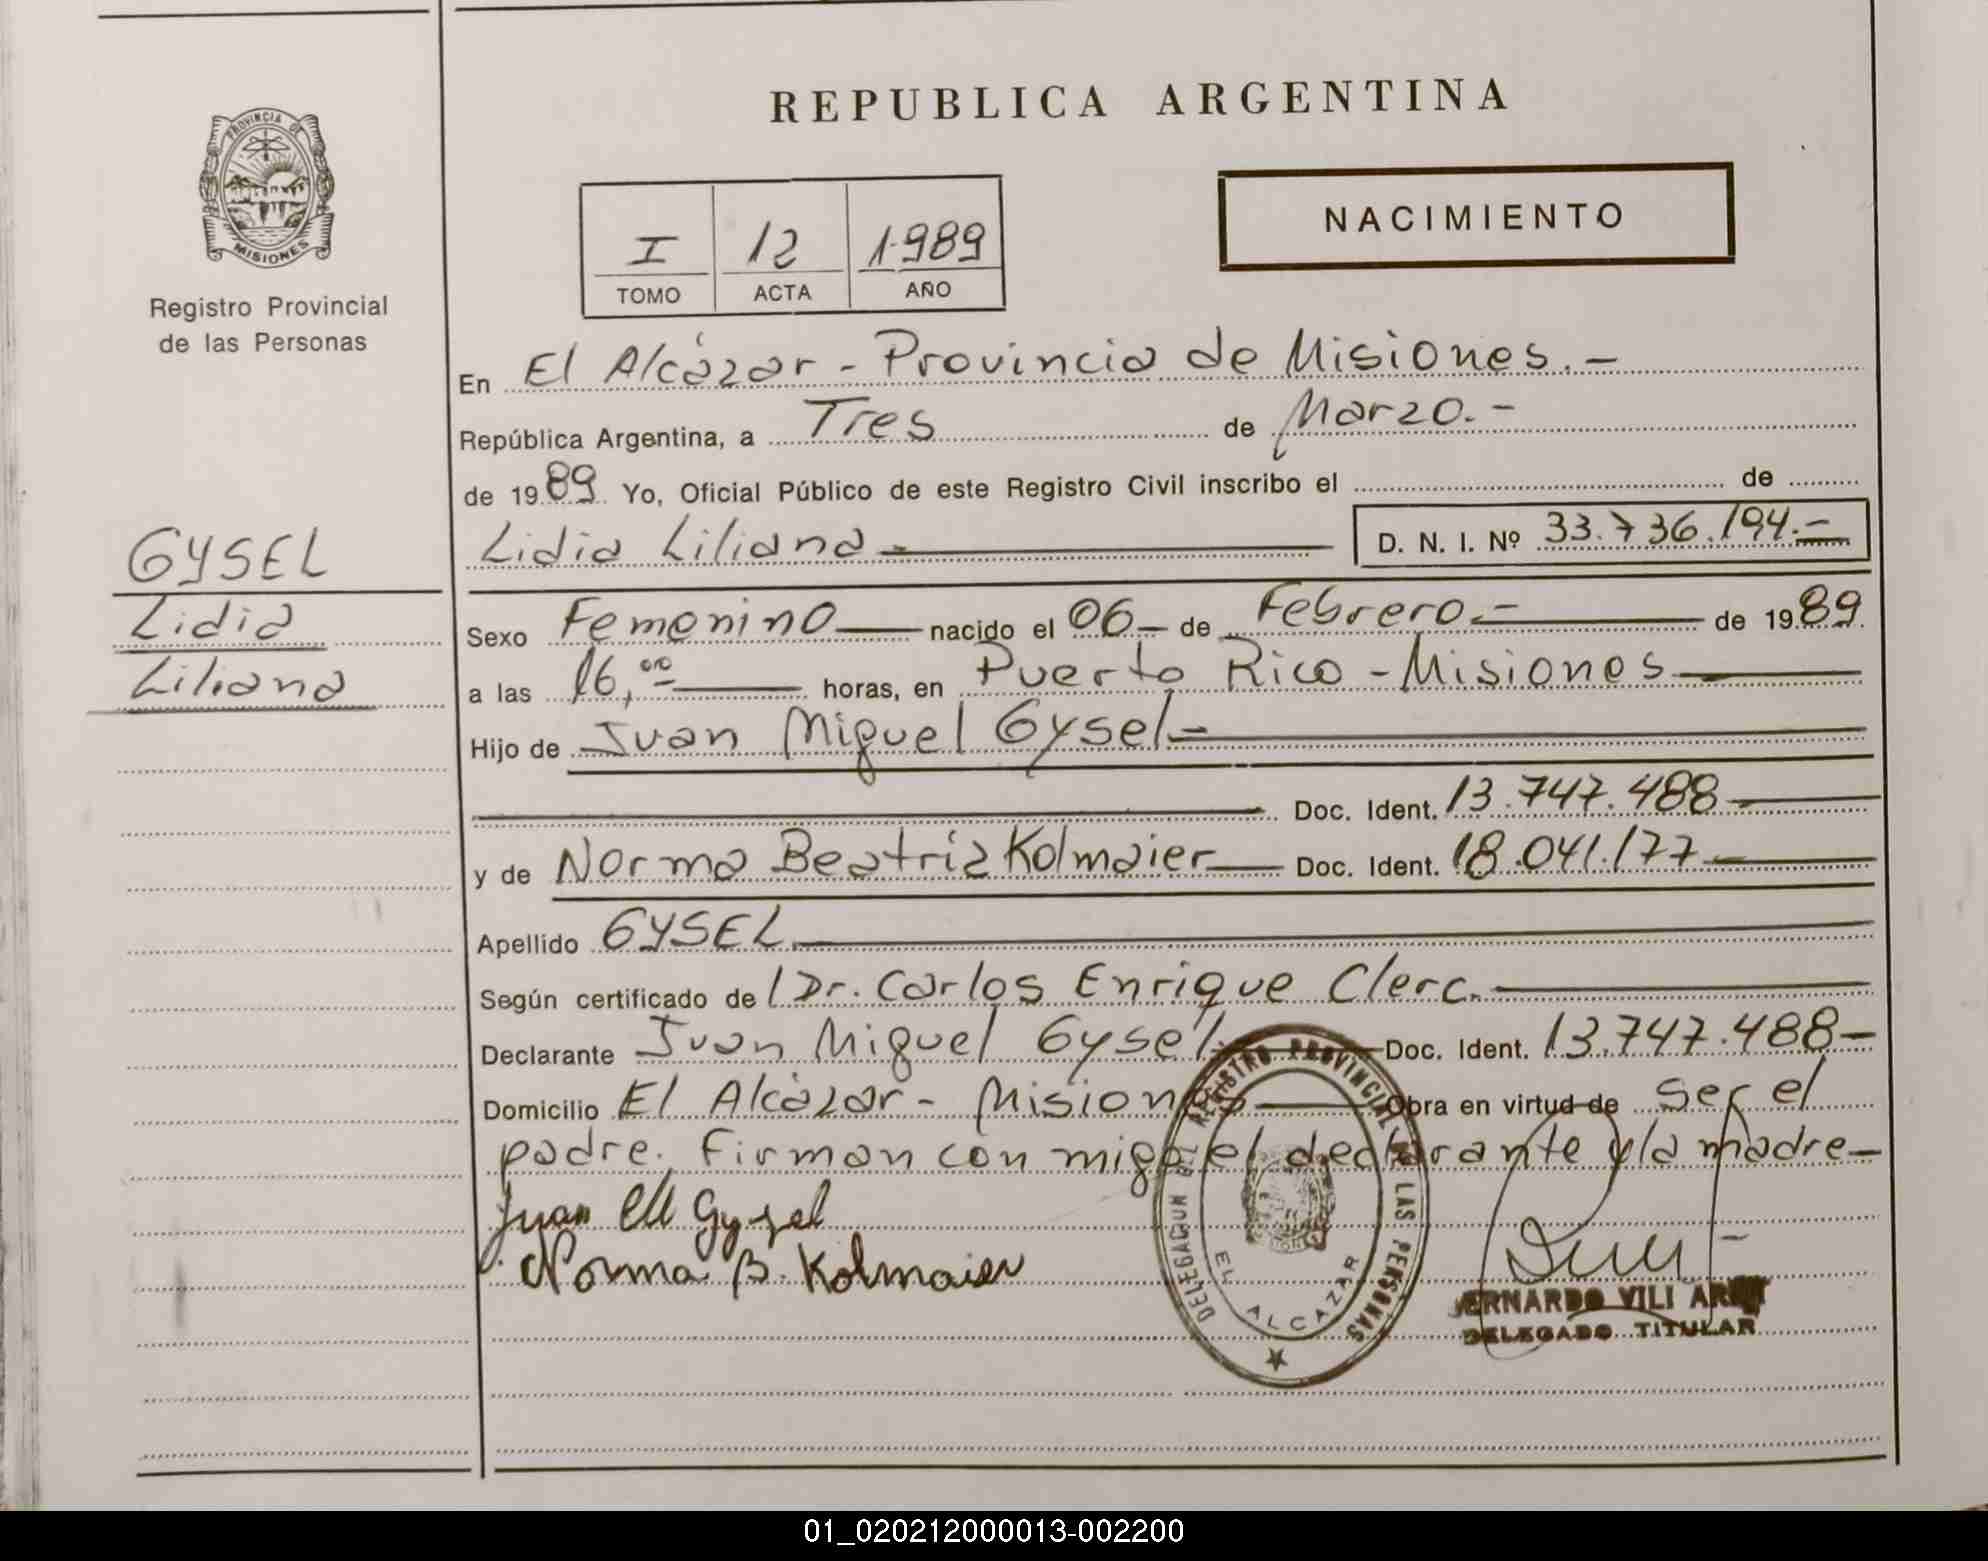 REPUBLICA ARGENTINA
PROVINCIA DE
MISIONES
Registro Provincial
de las Personas
I 12 1989
TOMO ACTA AÑO
NACIMIENTO
En El Alcázar - Provincia de Misiones.-
República Argentina, a Tres de Marzo.-
de 1989 Yo, Oficial Público de este Registro Civil inscribo el de
GYSEL
Lidia
Liliana
Lidia Liliana D. N. I. Nº 33.736.194.-
Sexo Femenino nacido el 06 de Febrero.- de 1989
a las 16,00 horas, en Puerto Rico - Misiones
Hijo de Juan Miguel Gysel-
Doc. Ident. 13.747.488
y de Norma Beatriz Kolmaier Doc. Ident. 18.041.177
Apellido GYSEL
Según certificado de Dr. Carlos Enrique Clerc.
Declarante Juan Miguel Gysel Doc. Ident. 13.747.488-
Domicilio El Alcázar - Misiones Obra en virtud de ser el
padre. Firman con migo el declarante y la madre-
Juan M Gysel
Norma B. Kolmaier
DELEGACION DEL REGISTRO PROVINCIAL DE LAS PERSONAS
EL ALCAZAR
VILI
DELEGADO TITULAR
01_020212000013-002200